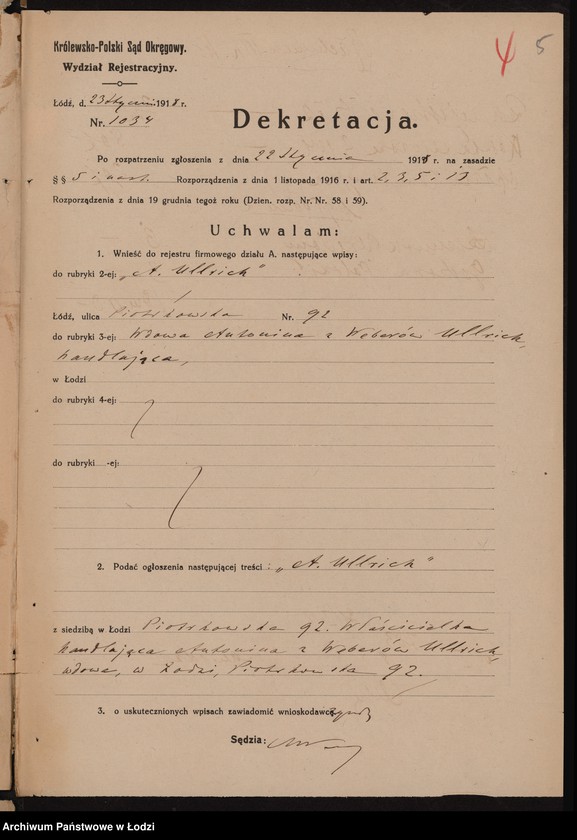 Królewsko-Polski Sąd Okręgowy.
Wydział Rejestracyjny.
4 5
Łódź, d. 23 Stycznia 1918 r.
Nr. 1034
Dekretacja.
Po rozpatrzeniu zgłoszenia z dnia 22 Stycznia 1918 r. na zasadzie
§ § 5 i nast. Rozporządzenia z dnia 1 listopada 1916 r. i art. 2, 3, 5 i 13
Rozporządzenia z dnia 19 grudnia tegoż roku (Dzien. rozp. Nr. Nr. 58 i 59).
Uchwalam:
1. Wnieść do rejestru firmowego działu A. następujące wpisy:
do rubryki 2-ej: „A. Ullrich"
Łódź, ulica Piotrkowska Nr. 92
do rubryki 3-ej: Wdowa Antonina z Weberów Ullrich,
handlująca,
w Łodzi
do rubryki 4-ej:
do rubryki -ej:
2. Podać ogłoszenia następującej treści: „A. Ullrich"
z siedzibą w Łodzi Piotrkowska 92. Właścicielka
handlująca Antonina z Weberów Ullrich,
wdowa, w Łodzi, Piotrkowska 92.
3. o uskutecznionych wpisach zawiadomić wnioskodawcę
Sędzia:
Archiwum Państwowe w Łodzi